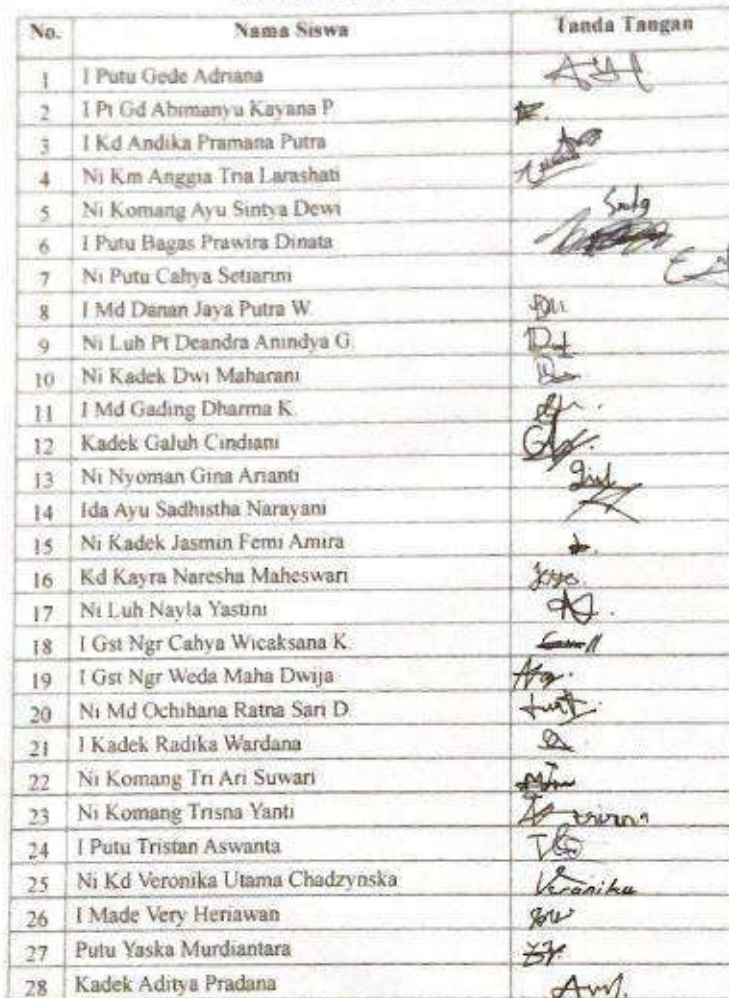 No. Nama Siswa Tanda Tangan
1 I Putu Gede Adriana
2 I Pt Gd Abimanyu Kayana P
3 I Kd Andika Pramana Putra
4 Ni Km Anggia Tria Larashati
5 Ni Komang Ayu Sintya Dewi
6 I Putu Bagas Prawira Dinata
7 Ni Putu Cahya Setiarini
8 I Md Danan Jaya Putra W.
9 Ni Luh Pt Deandra Anindya G.
10 Ni Kadek Dwi Maharani
11 I Md Gading Dharma K.
12 Kadek Galuh Cindiani
13 Ni Nyoman Gina Arianti
14 Ida Ayu Sadhistha Narayani
15 Ni Kadek Jasmin Femi Amira
16 Kd Kayra Naresha Maheswari
17 Ni Luh Nayla Yastini
18 I Gst Ngr Cahya Wicaksana K.
19 I Gst Ngr Weda Maha Dwija
20 Ni Md Ochihana Ratna Sari D.
21 I Kadek Radika Wardana
22 Ni Komang Tri Ari Suwari
23 Ni Komang Trisna Yanti
24 I Putu Tristan Aswanta
25 Ni Kd Veronika Utama Chadzynska Veronika
26 I Made Very Heriawan
27 Putu Yaska Murdiantara
28 Kadek Aditya Pradana